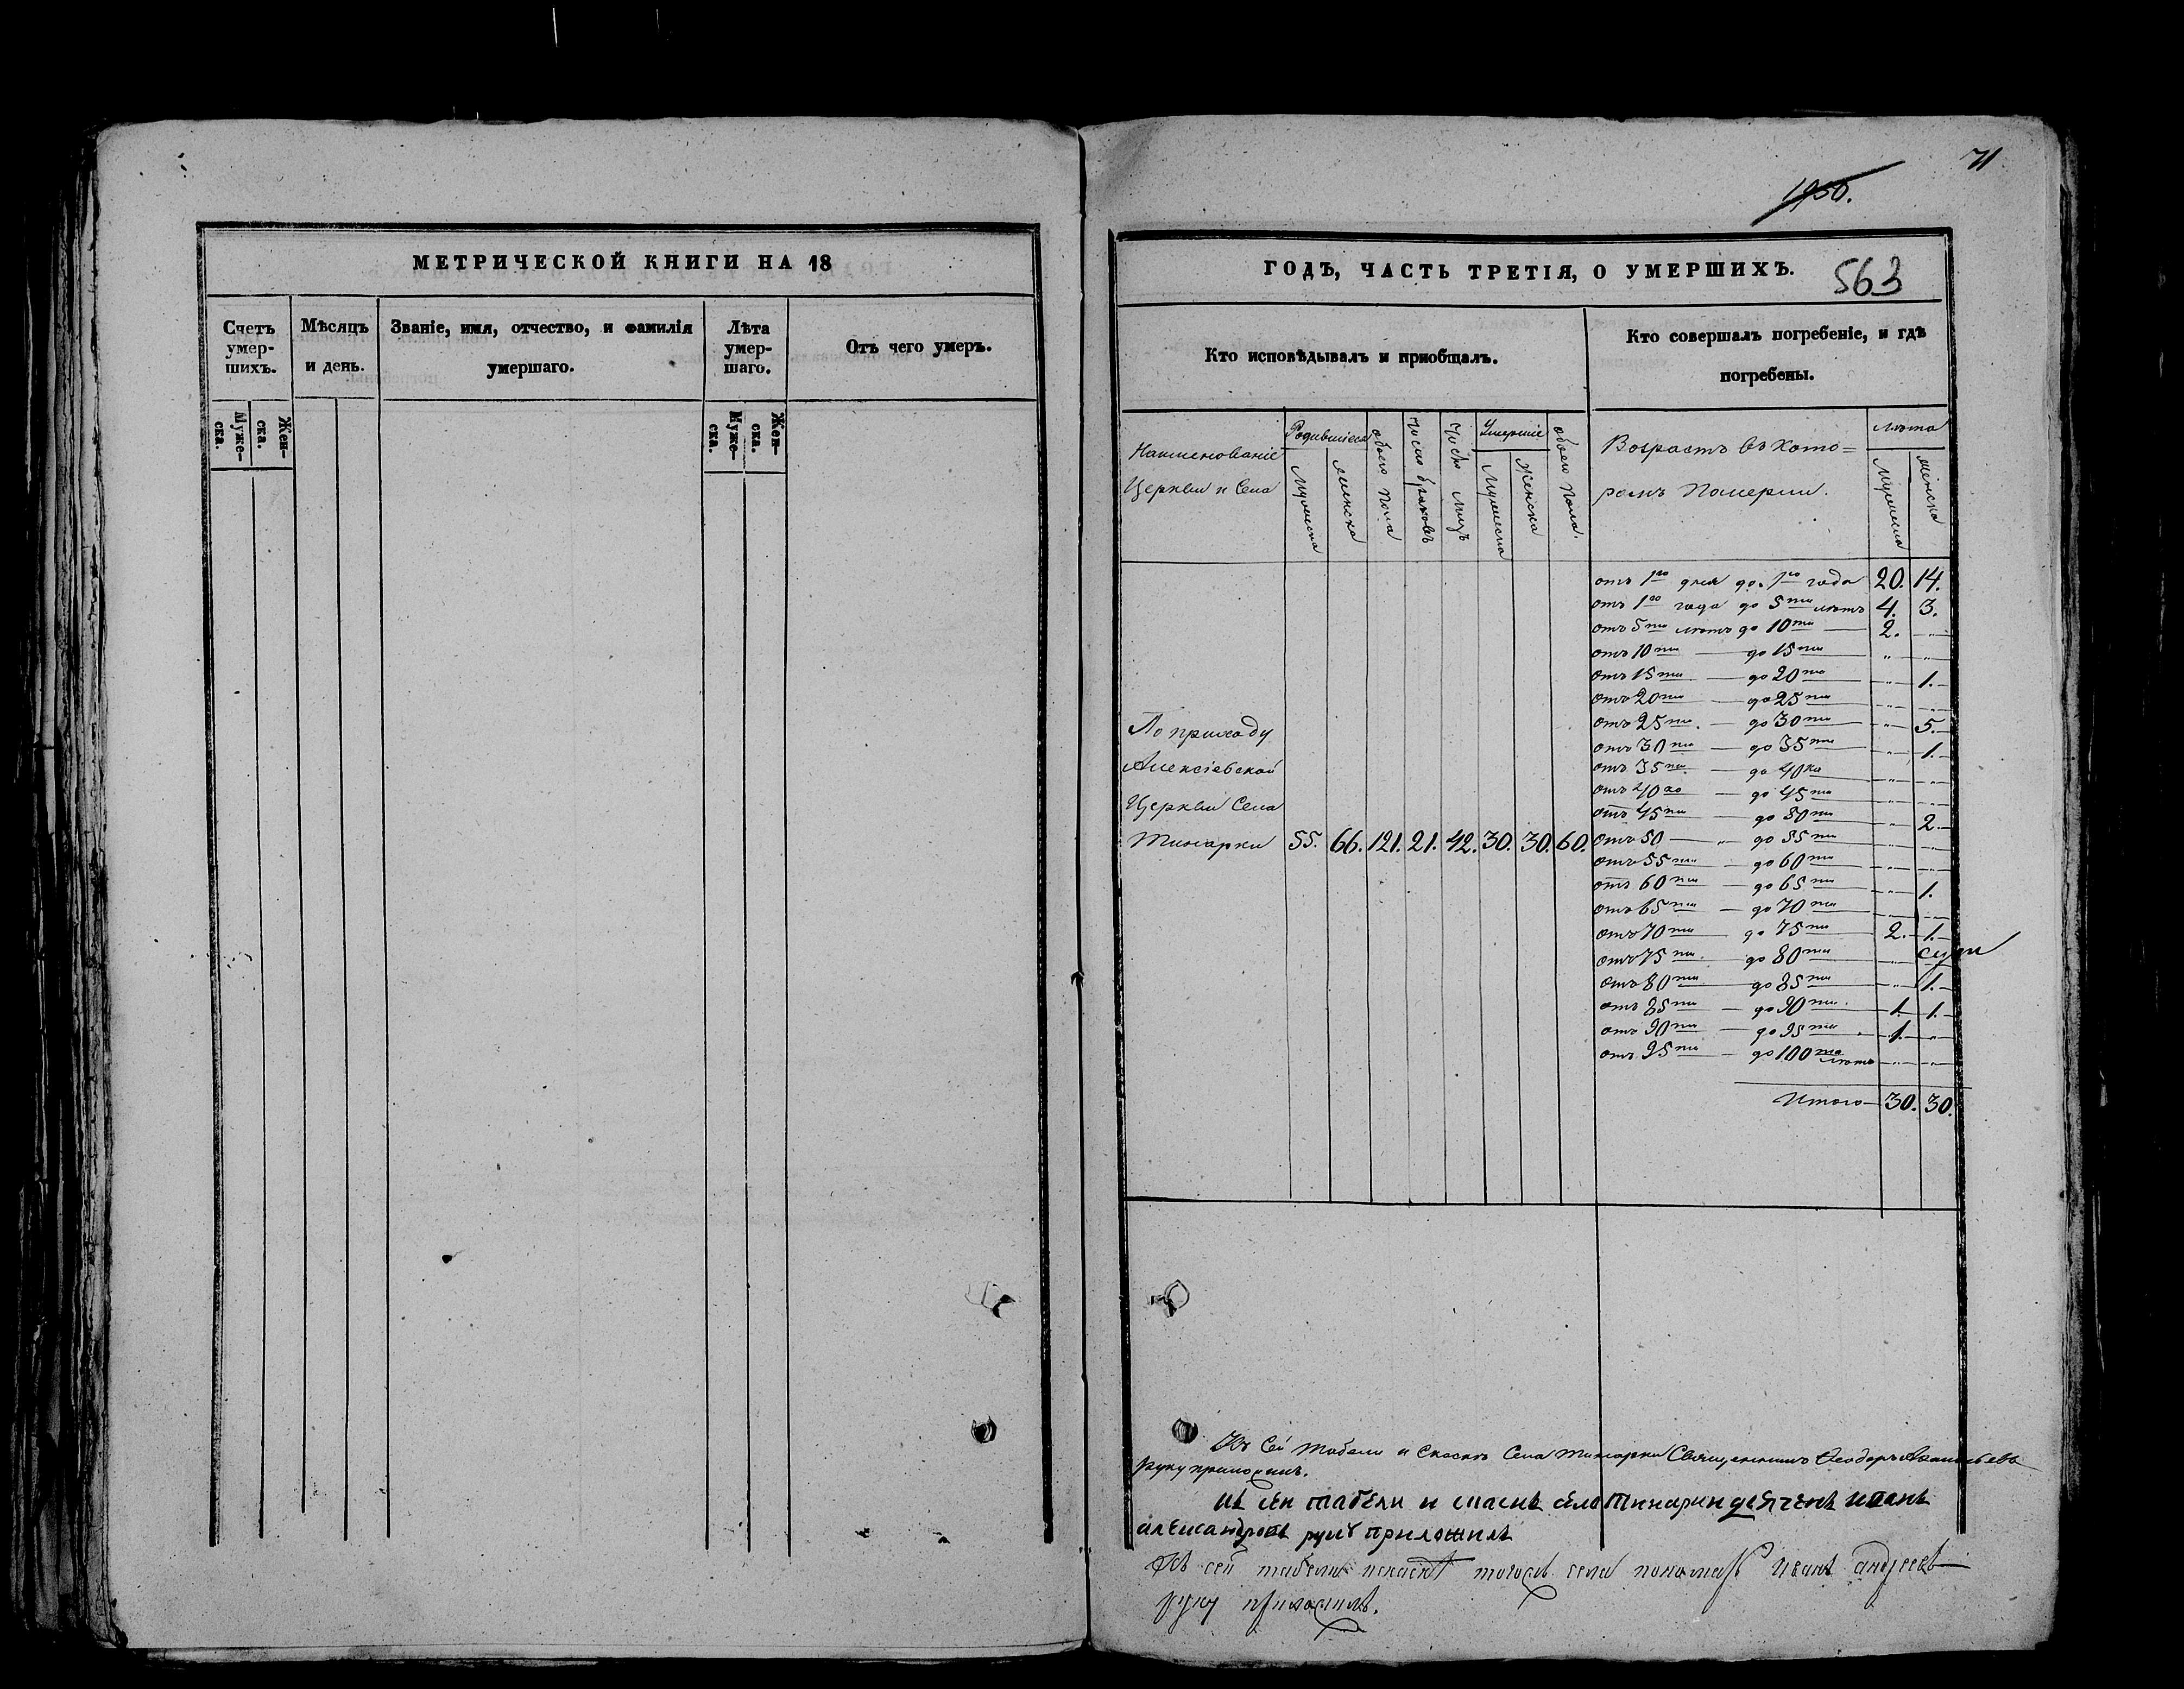 71
1950.
МЕТРИЧЕСКОЙ КНИГИ НА 18
Счетъ умер-шихъ.
Муже-ска.
Жен-ска.
Мѣсяцъ и день.
Званіе, имя, отчество, и фамилія умершаго.
Лѣта умер-шаго.
Муже-ска.
Жен-ска.
Отъ чего умеръ.
ГОДЪ, ЧАСТЬ ТРЕТІЯ, О УМЕРШИХЪ.
563
Кто исповѣдывалъ и пріобщалъ.
Кто совершалъ погребеніе, и гдѣ
погребены.
Наименованіе
Церкви и Села
Родившіеся
Мужеска
Женска
обоего пола
число браковъ
число лицъ
Умершіе
Мужеска
Женска
обоего пола.
Возрастъ въ кото=
ромъ Померли.
лѣта
Мужеска
Женска
По приходу
Алексіевской
Церкви Села
55. 66. 121. 21. 42. 30. 30. 60.
отъ 1го дня до 1го года 20. 14.
отъ 1го года до 5ти лѣтъ 4. 3.
отъ 5ти лѣтъ до 10ти — 2. „
отъ 10ти — до 15ти — „ „
отъ 15ти — до 20ти — „ 1.
отъ 20ти — до 25ти — „ „
отъ 25ти — до 30ти — „ 5.
отъ 30ти — до 35ти — „ 1.
отъ 35ти — до 40ка — „ „
отъ 40ка — до 45ти — „ „
отъ 45ти — до 50ти — „ 2
отъ 50 — до 55ти — „ „
отъ 55ти — до 60ти — „ „
отъ 60ти — до 65ти — „ 1.
отъ 65ти — до 70ти — „ „
отъ 70ти до 75ти 2. 1.
отъ 75ти до 80ти „
отъ 80ти до 85ти — „ 1.
отъ 85ти — до 90ти 1. 1.
отъ 90ти — до 95ти 1. „
отъ 95ти — до 100та лѣтъ „ „
Итого — 30. 30.
Къ сей табели и Села Священникъ Ѳеодоръ
руку приложилъ.
Къ сей табели и села дьячекъ Иванъ
Александровъ руку приложилъ
Къ сей табели тогожъ села пономарь Иванъ Андреевъ
руку приложилъ.